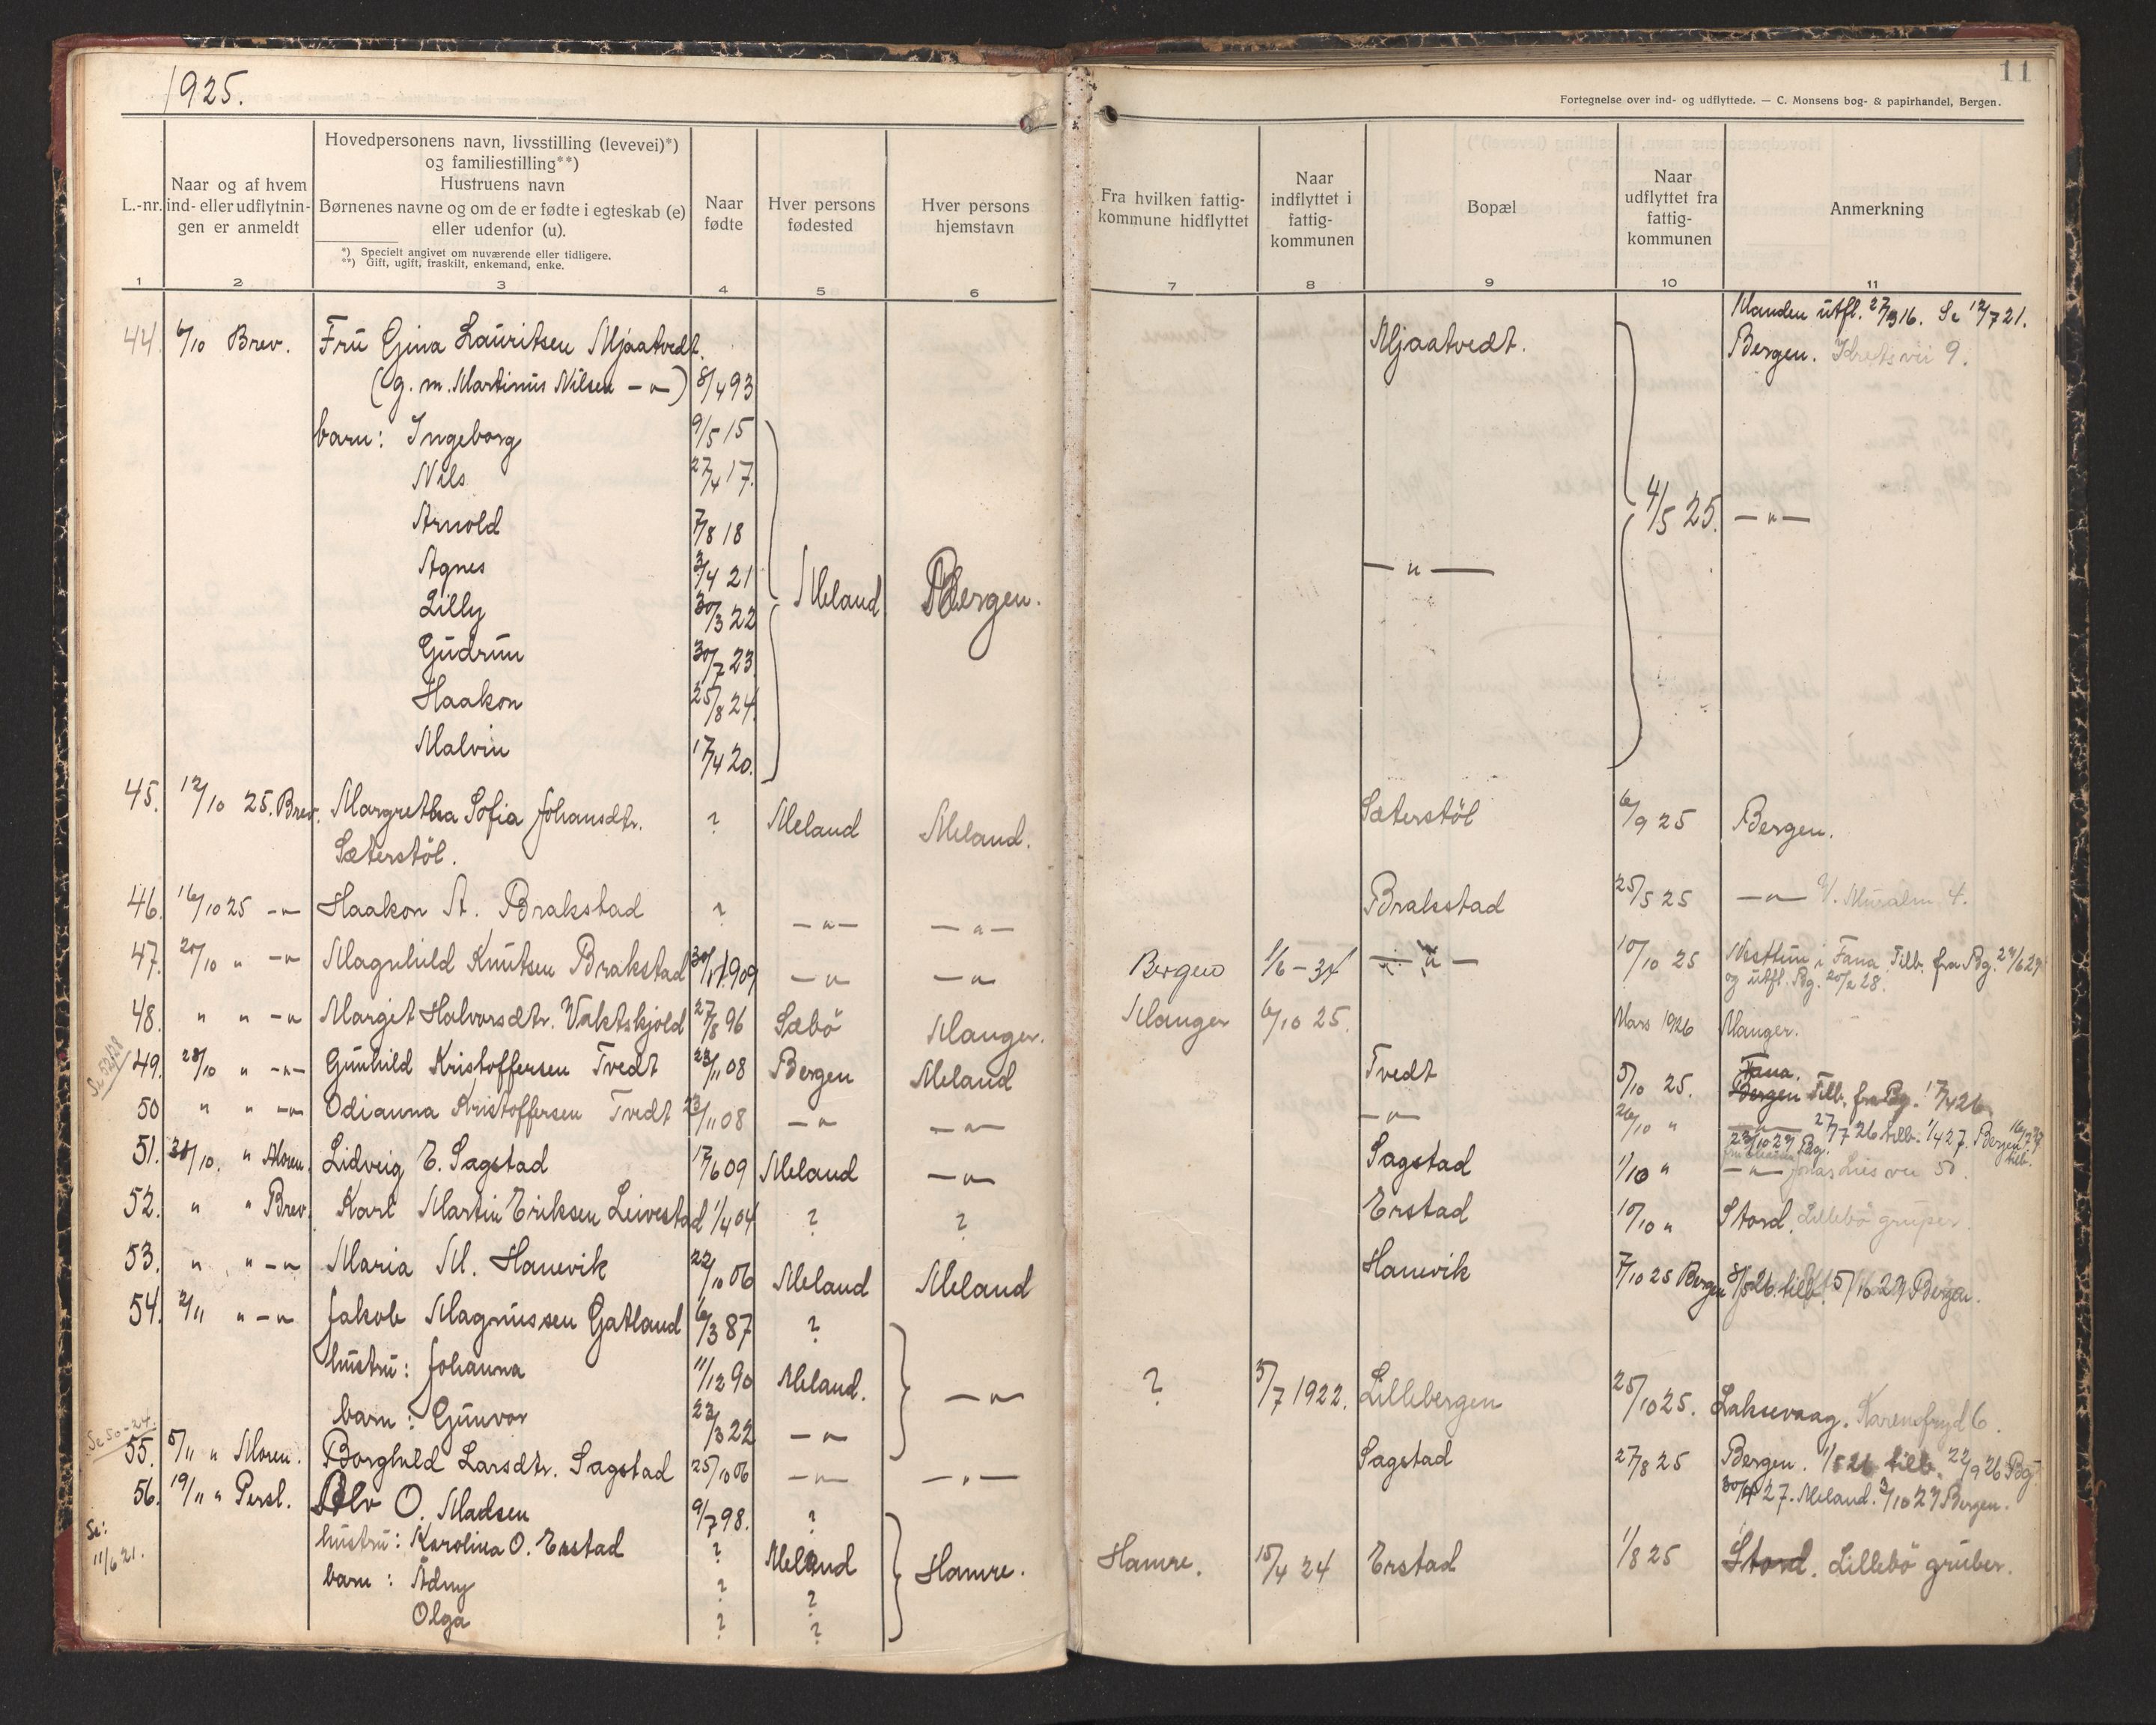 1925.
11
Fortegnelse over ind- og udflyttede. — C. Monsens bog- & papirhandel, Bergen.
L.-nr.
Naar og af hvem ind- eller udflytnin- gen er anmeldt
Hovedpersonens navn, livsstilling (levevei)*)
og familiestilling**)
Hustruens navn
Børnenes navne og om de er fødte i egteskab (e)
eller udenfor (u).
*) Specielt angivet om nuværende eller tidligere.
**) Gift, ugift, fraskilt, enkemand, enke.
Naar fødte
Hver persons fødested
Hver persons hjemstavn
Fra hvilken fattig- kommune hidflyttet
Naar indflyttet i fattig- kommunen
Bopæl
Naar udflyttet fra fattig- kommunen
Anmerkning
1 2 3 4 5 6 7 8 9 10 11
Manden utfl. 27/3 16. Se 12/7 21.
44. 6/10 Brev. Fru Gina Lauritsen Mjaatvedt. Mjaatvedt. Bergen. 9.
(g. m. Martinus Nilsen —"—) 8/4 93
barn: Ingeborg 9/5 15
Nils 27/4 17.
Arnold 7/8 18 4/5 25. —"—
Agnes 3/4 21 —"—
Lilly 30/3 22 Meland Bergen.
Gudrun 30/7 23
Haakon 25/8 24.
Malvin 17/4 20.
45. 12/10 25. Brev. Margretha Sofia Johansdtr. ? Meland Meland. Sæterstöl 6/9 25 Bergen.
Sæterstöl.
46. 16/10 25 —"— Haakon A. Brakstad ? —"— —"— Brakstad 25/5 25 —"— 4.
47. 20/10 " —"— Magnhild Knutsen Brakstad 30/11 1909 —"— —"— Bergen 1/6 - 34 —"— 10/10 25 Nesttun i Fana. Tilb. fra Bg. 24/6 27
og utfl. Bg. 20/2 28.
48. " " —"— Margit Halvorsdtr. Vaktskjold 27/8 96 Sæbö Manger. Manger 6/10 25. Mars 1926 Manger.
Se 52/28
49. 28/10 " —"— Gunhild Kristoffersen Tvedt 23/11 08 Bergen Meland Tvedt 5/10 25. Fana.
Bergen Tilb. fra Bg. 17/4 26
50 " " —"— Odianna Kristoffersen Tvedt 23/11 08 —"— —"— —"— 26/10 " —"— 27/7 26 tilb. 1/4 27. Bergen
23/10 27 Bg. tilb.
51. 28/10. " Moren. Lidveig E. Sagstad 17/6 09 Meland —"— Sagstad 1/10 " —"— Jonas Lies vei 50.
52. " " Brev. Karl Martin Eriksen Leivestad 1/4 04 ? ? Erstad 10/10 " Stord. Lillebö gruper.
53. " " —"— Maria M. Hanevik 22/10 06 Meland Meland Hanevik 7/10 25 Bergen 8/5 26. tilb. 5/10 27 Bergen.
54. 2/11 " —"— Jakob Magnussen Gatland 6/3 87 ?
hustru: Johanna 11/12 90 Meland. —"— ? 5/7 1922. Lillebergen 25/10 25. Laksevaag. Karensfryd 6.
barn: Gunvor 23/3 22 —"—
Se 50-24.
55. 5/11 " Moren. Borghild Larsdtr. Sagstad 25/10 06 —"— —"— Sagstad 27/8 25 Bergen. 1/5 26 tilb. 22/9 26 Bg.
30/4 27. Meland. 3/10 27 Bergen.
56. 19/11 " Persl. Olv O. Madsen 9/7 98. ?
Se:
11/6 21.
hustru: Karolina O. Erstad ? Meland Hamre. Hamre. 15/4 24 Erstad 1/8 25 Stord. Lillebö gruber.
barn: Ådny ? ?
Olga ? ?